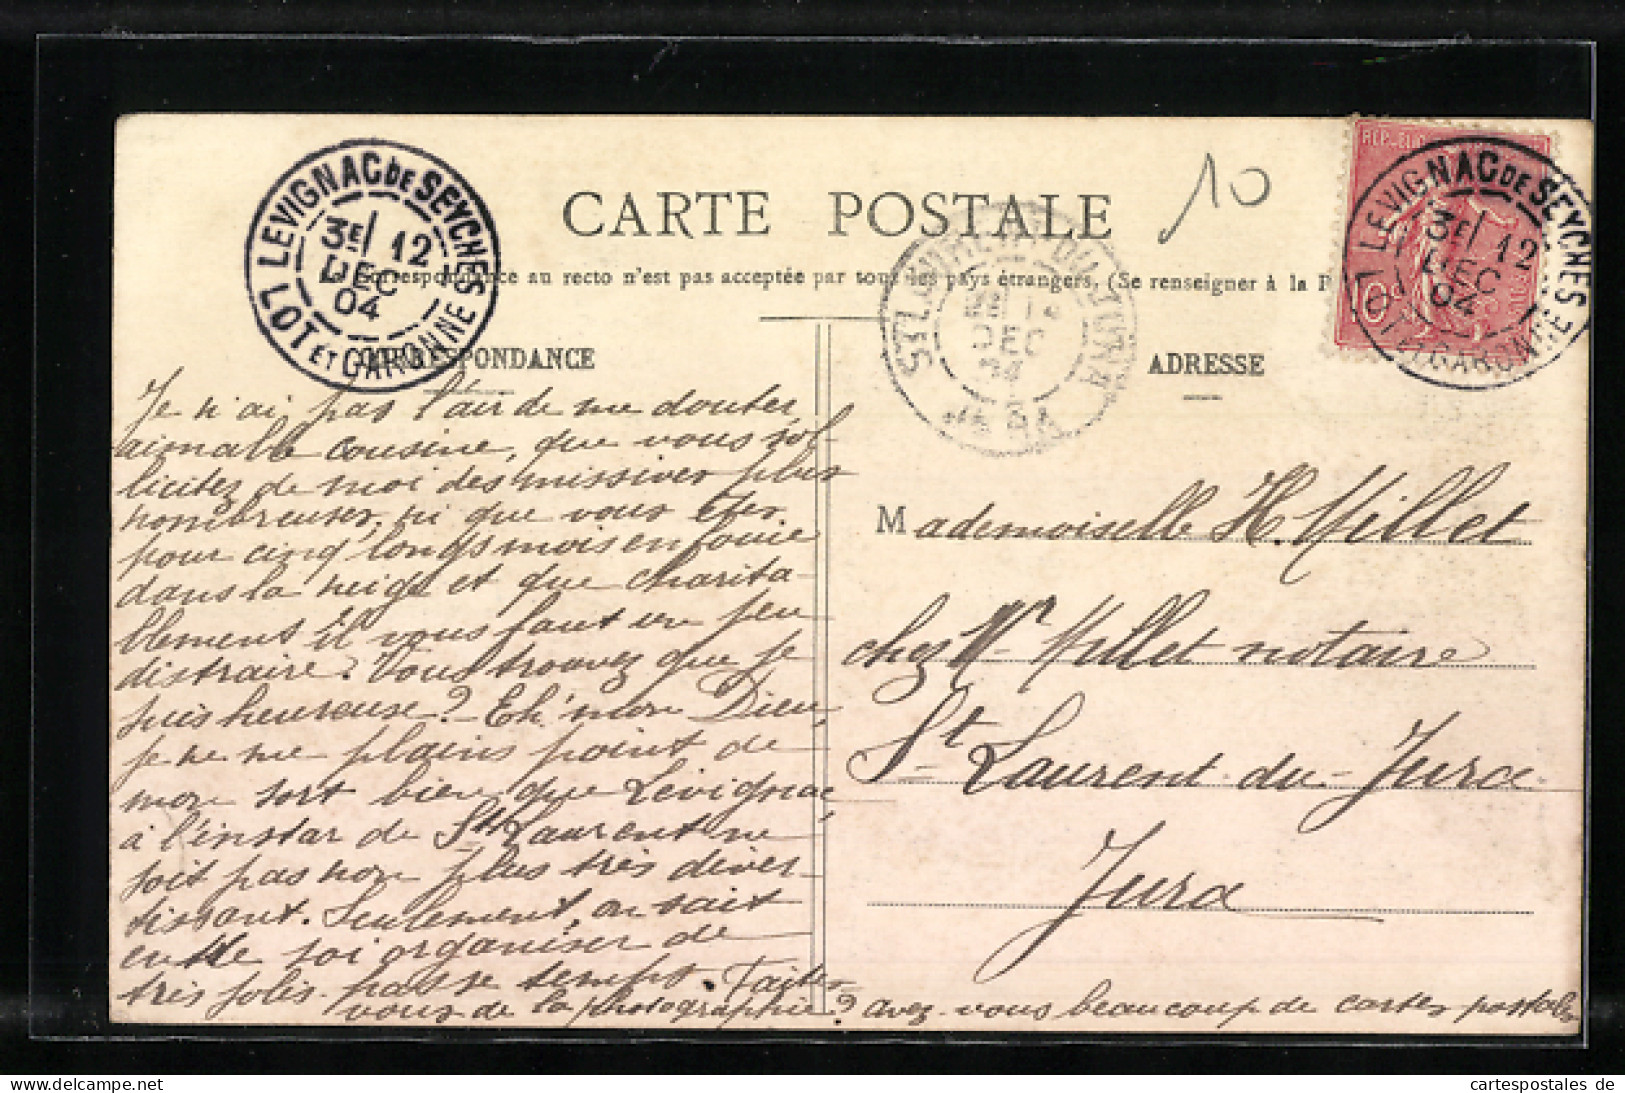 10
CARTE POSTALE
Correspondance au recto n'est pas acceptée par tous les pays étrangers. (Se renseigner à la P
CORRESPONDANCE
ADRESSE
LEVIGNAC DE SEYCHES
3E 12
DEC
04
LOT ET GARONNE
ST LAURENT DU JURA
DEC
04
JURA
REP
10c
LEVIGNAC DE SEYCHES
3E 12
DEC
04
LOT ET GARONNE
Je n'ai pas l'air de me douter,
aimable cousine, que vous sol-
licitez de moi des missives plus
nombreuses, ni que vous êtes
pour cinq longs mois enfouie
dans la neige et que charita-
blement il vous faut un peu
distraire. Vous trouvez que je
suis heureuse? Eh! mon Dieu,
je ne me plains point de
mon sort bien que Lévignac
à l'instar de St Laurent ne
soit pas non plus très diver-
tissant. Seulement, on sait
entre soi organiser de
très jolis passe temps. Faites
vous de la photographie? avez-vous beaucoup de cartes postales
Mademoiselle H. Millet
chez Mr Millet notaire
St Laurent-du-Jura
Jura
cartespostales de